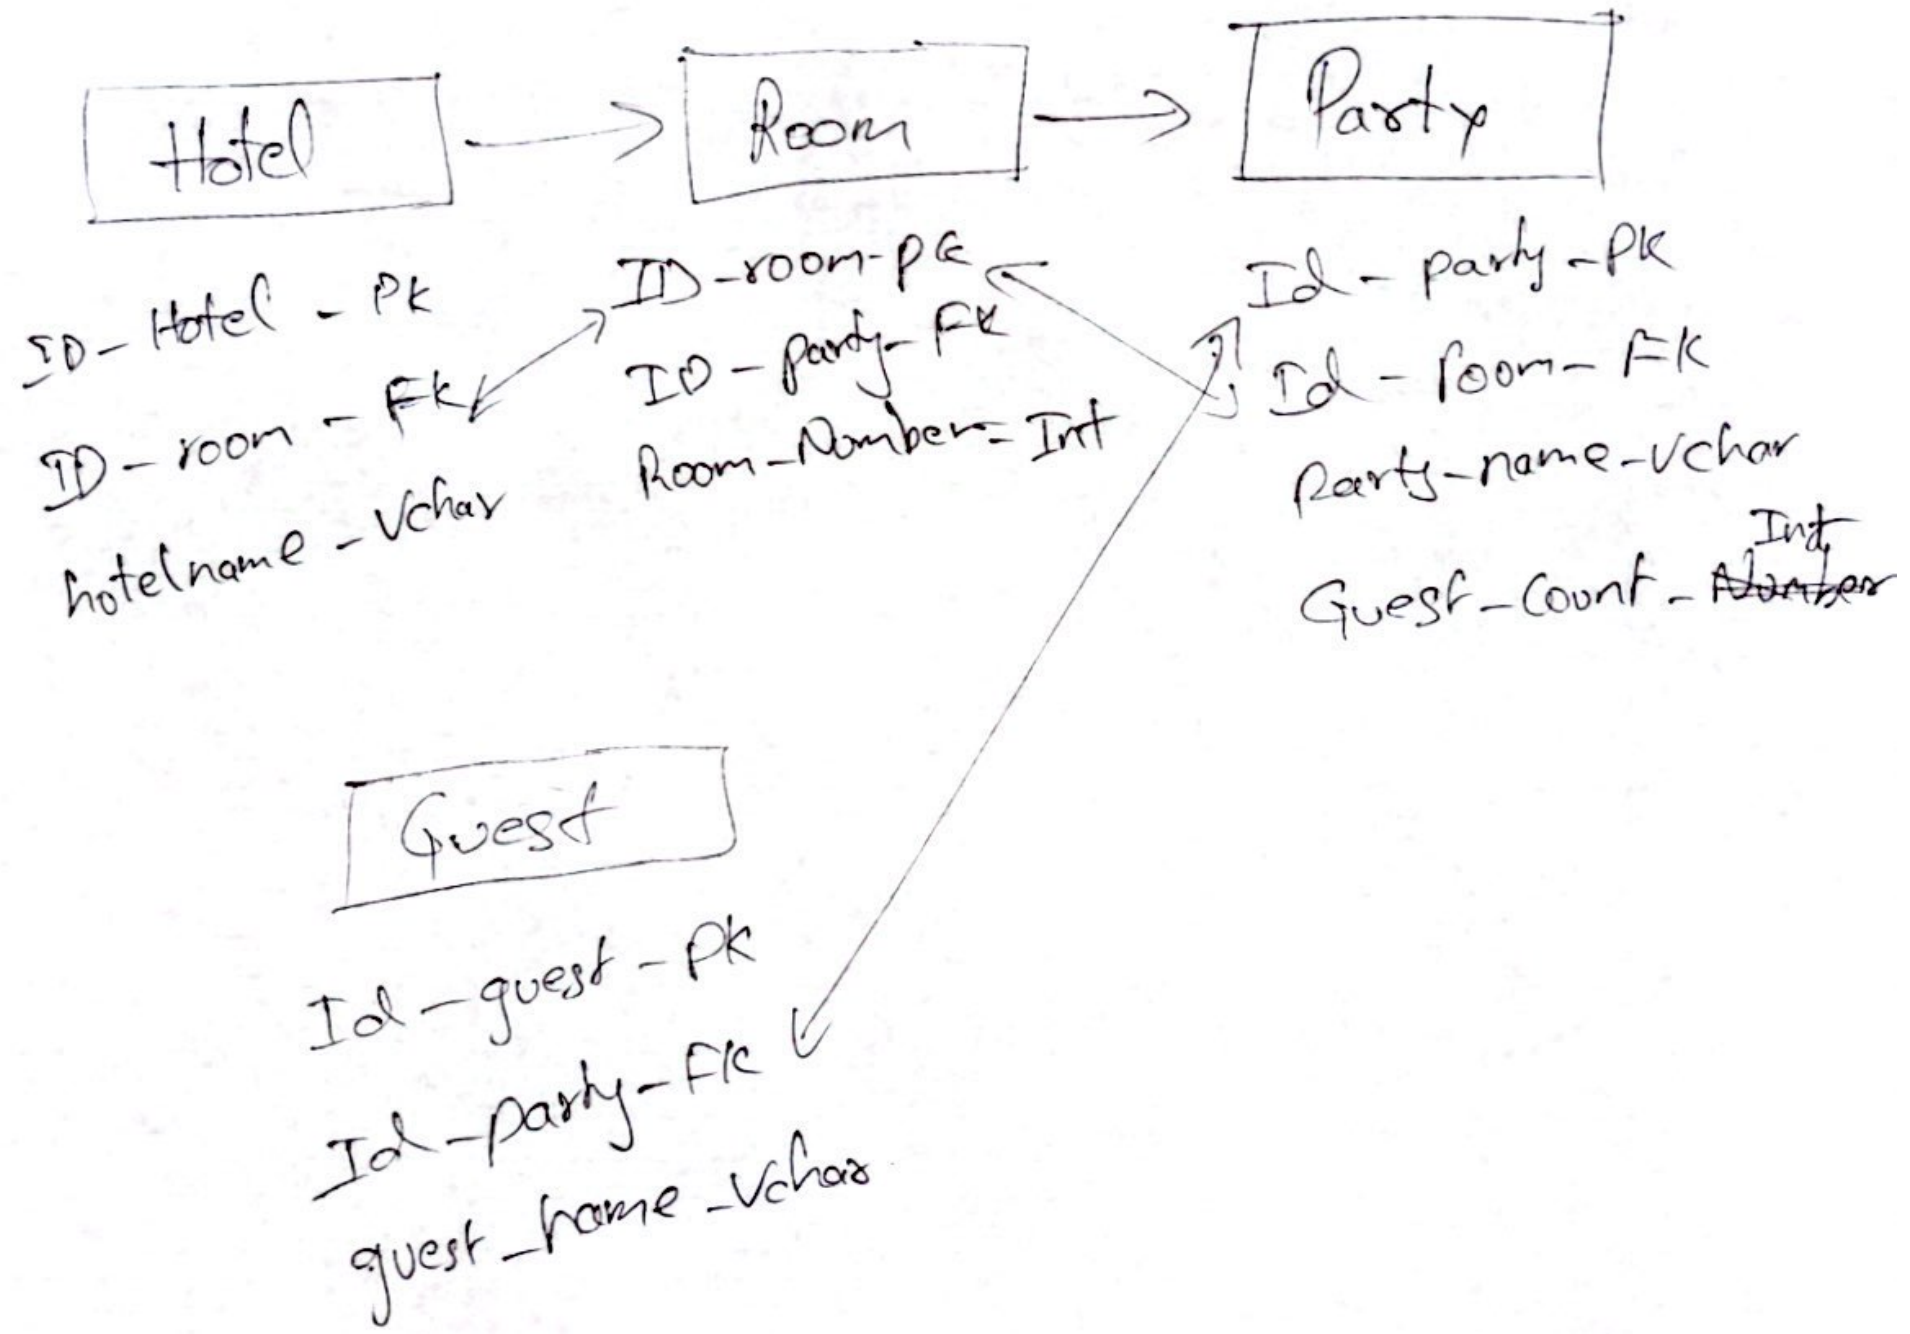 Hotel
Room
Party
ID-Hotel - PK
ID-room - FK
hotelname - Vchar
ID-room-PK
ID-party-FK
Room-Number-Int
Id-party-PK
Id-room-FK
Party-name-Vchar
Int
Guest-Count-Number
Guest
Id-guest-PK
Id-party-FK
guest_name-Vchar